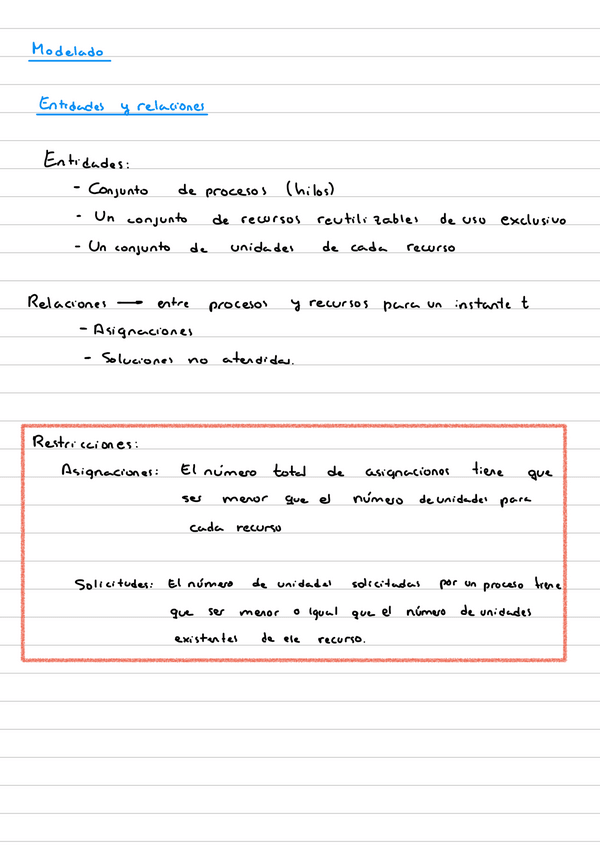 Modelado
Entidades y relaciones
Entidades:
- Conjunto de procesos (hilos)
- Un conjunto de recursos reutilizables de uso exclusivo
- Un conjunto de unidades de cada recurso
Relaciones → entre procesos y recursos para un instante t
- Asignaciones
- Soluciones no atendidas.
Restricciones:
Asignaciones: El número total de asignaciones tiene que
ser menor que el número de unidades para
cada recurso
Solicitudes: El número de unidades solicitadas por un proceso tiene
que ser menor o igual que el número de unidades
existentes de ese recurso.